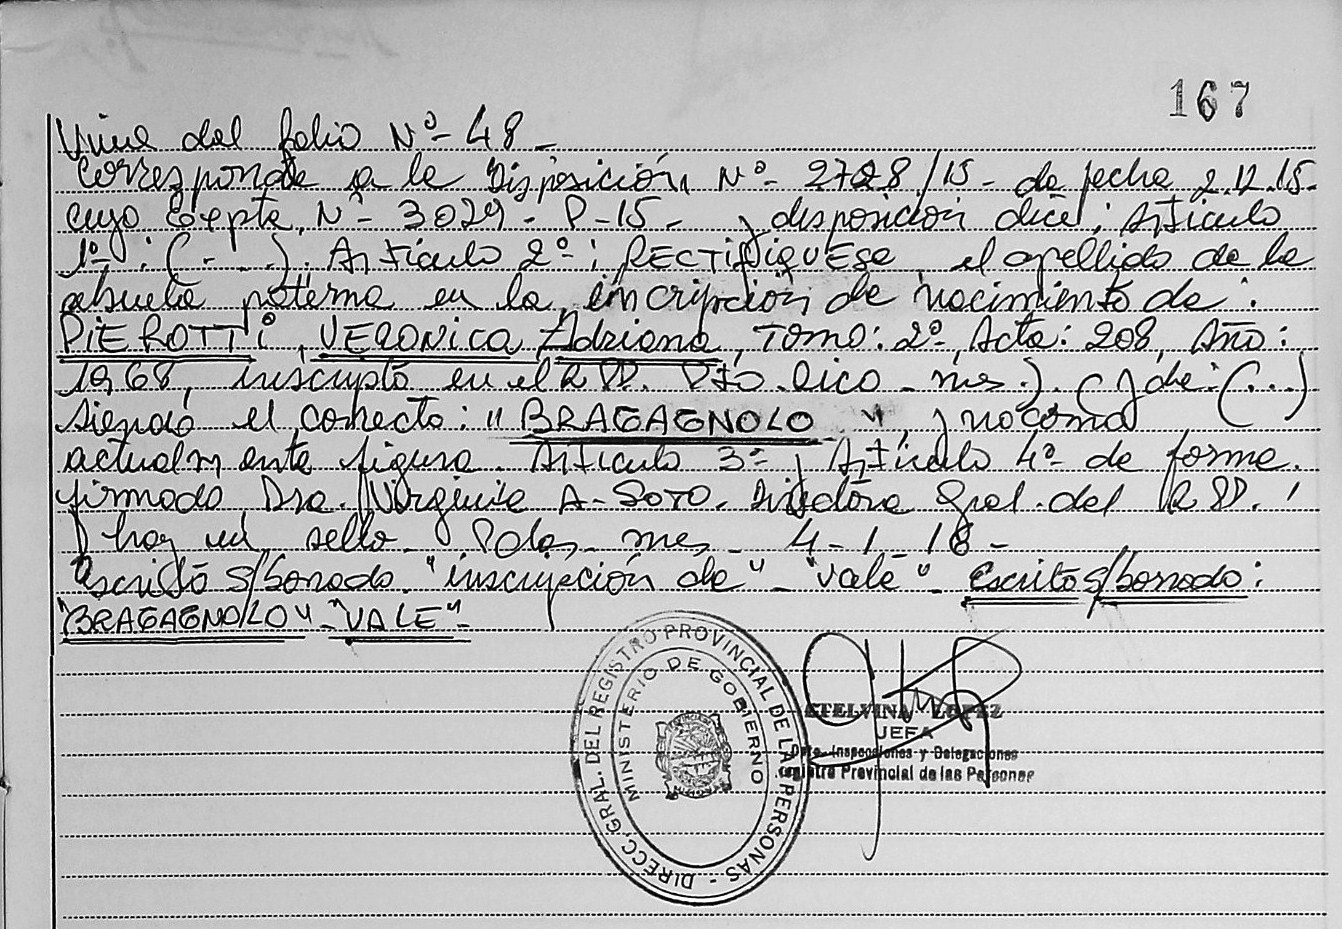 167
Viene del folio Nº- 48 -
Corresponde a la Disposición Nº- 2728/15 - de fecha 2.12.15-
cuyo Expte. Nº- 3029 - P-15 - y disposición dice: Artículo
1º-: (- ...). Artículo 2º: RECTIFIQUESE el apellido de la
abuela paterna en la incripción de nacimiento de:
PIEROTTi, VERONICA Adriana, Tomo: 2º, Acta: 208, Año:
1968, inscripto en el R.P.P. Pto. Rico - mnes.). ( ) de: (...)
siendo el correcto: "BRAGAGNOLO", y no como
actualmente figura. Artículo 3º y Artículo 4º de forma.
firmado Dra. Virginia A. Soto. Directora Gral. del R.P.P.
y hay un sello. Pdas. mnes. 4-1-16-
Escrito S/borrado "inscripción de" - "vale" - Escrito s/borrado:
"BRAGAGNOLO" - "VALE" -
DIRECC. GRAL. DEL REGISTRO PROVINCIAL DE LA PERSONAS -
MINISTERIO DE GOBIERNO
MISIONES
ETELVINA LOPEZ
JEFA
Dpto. Inspecciones y Delegaciones
Registro Provincial de las Personas